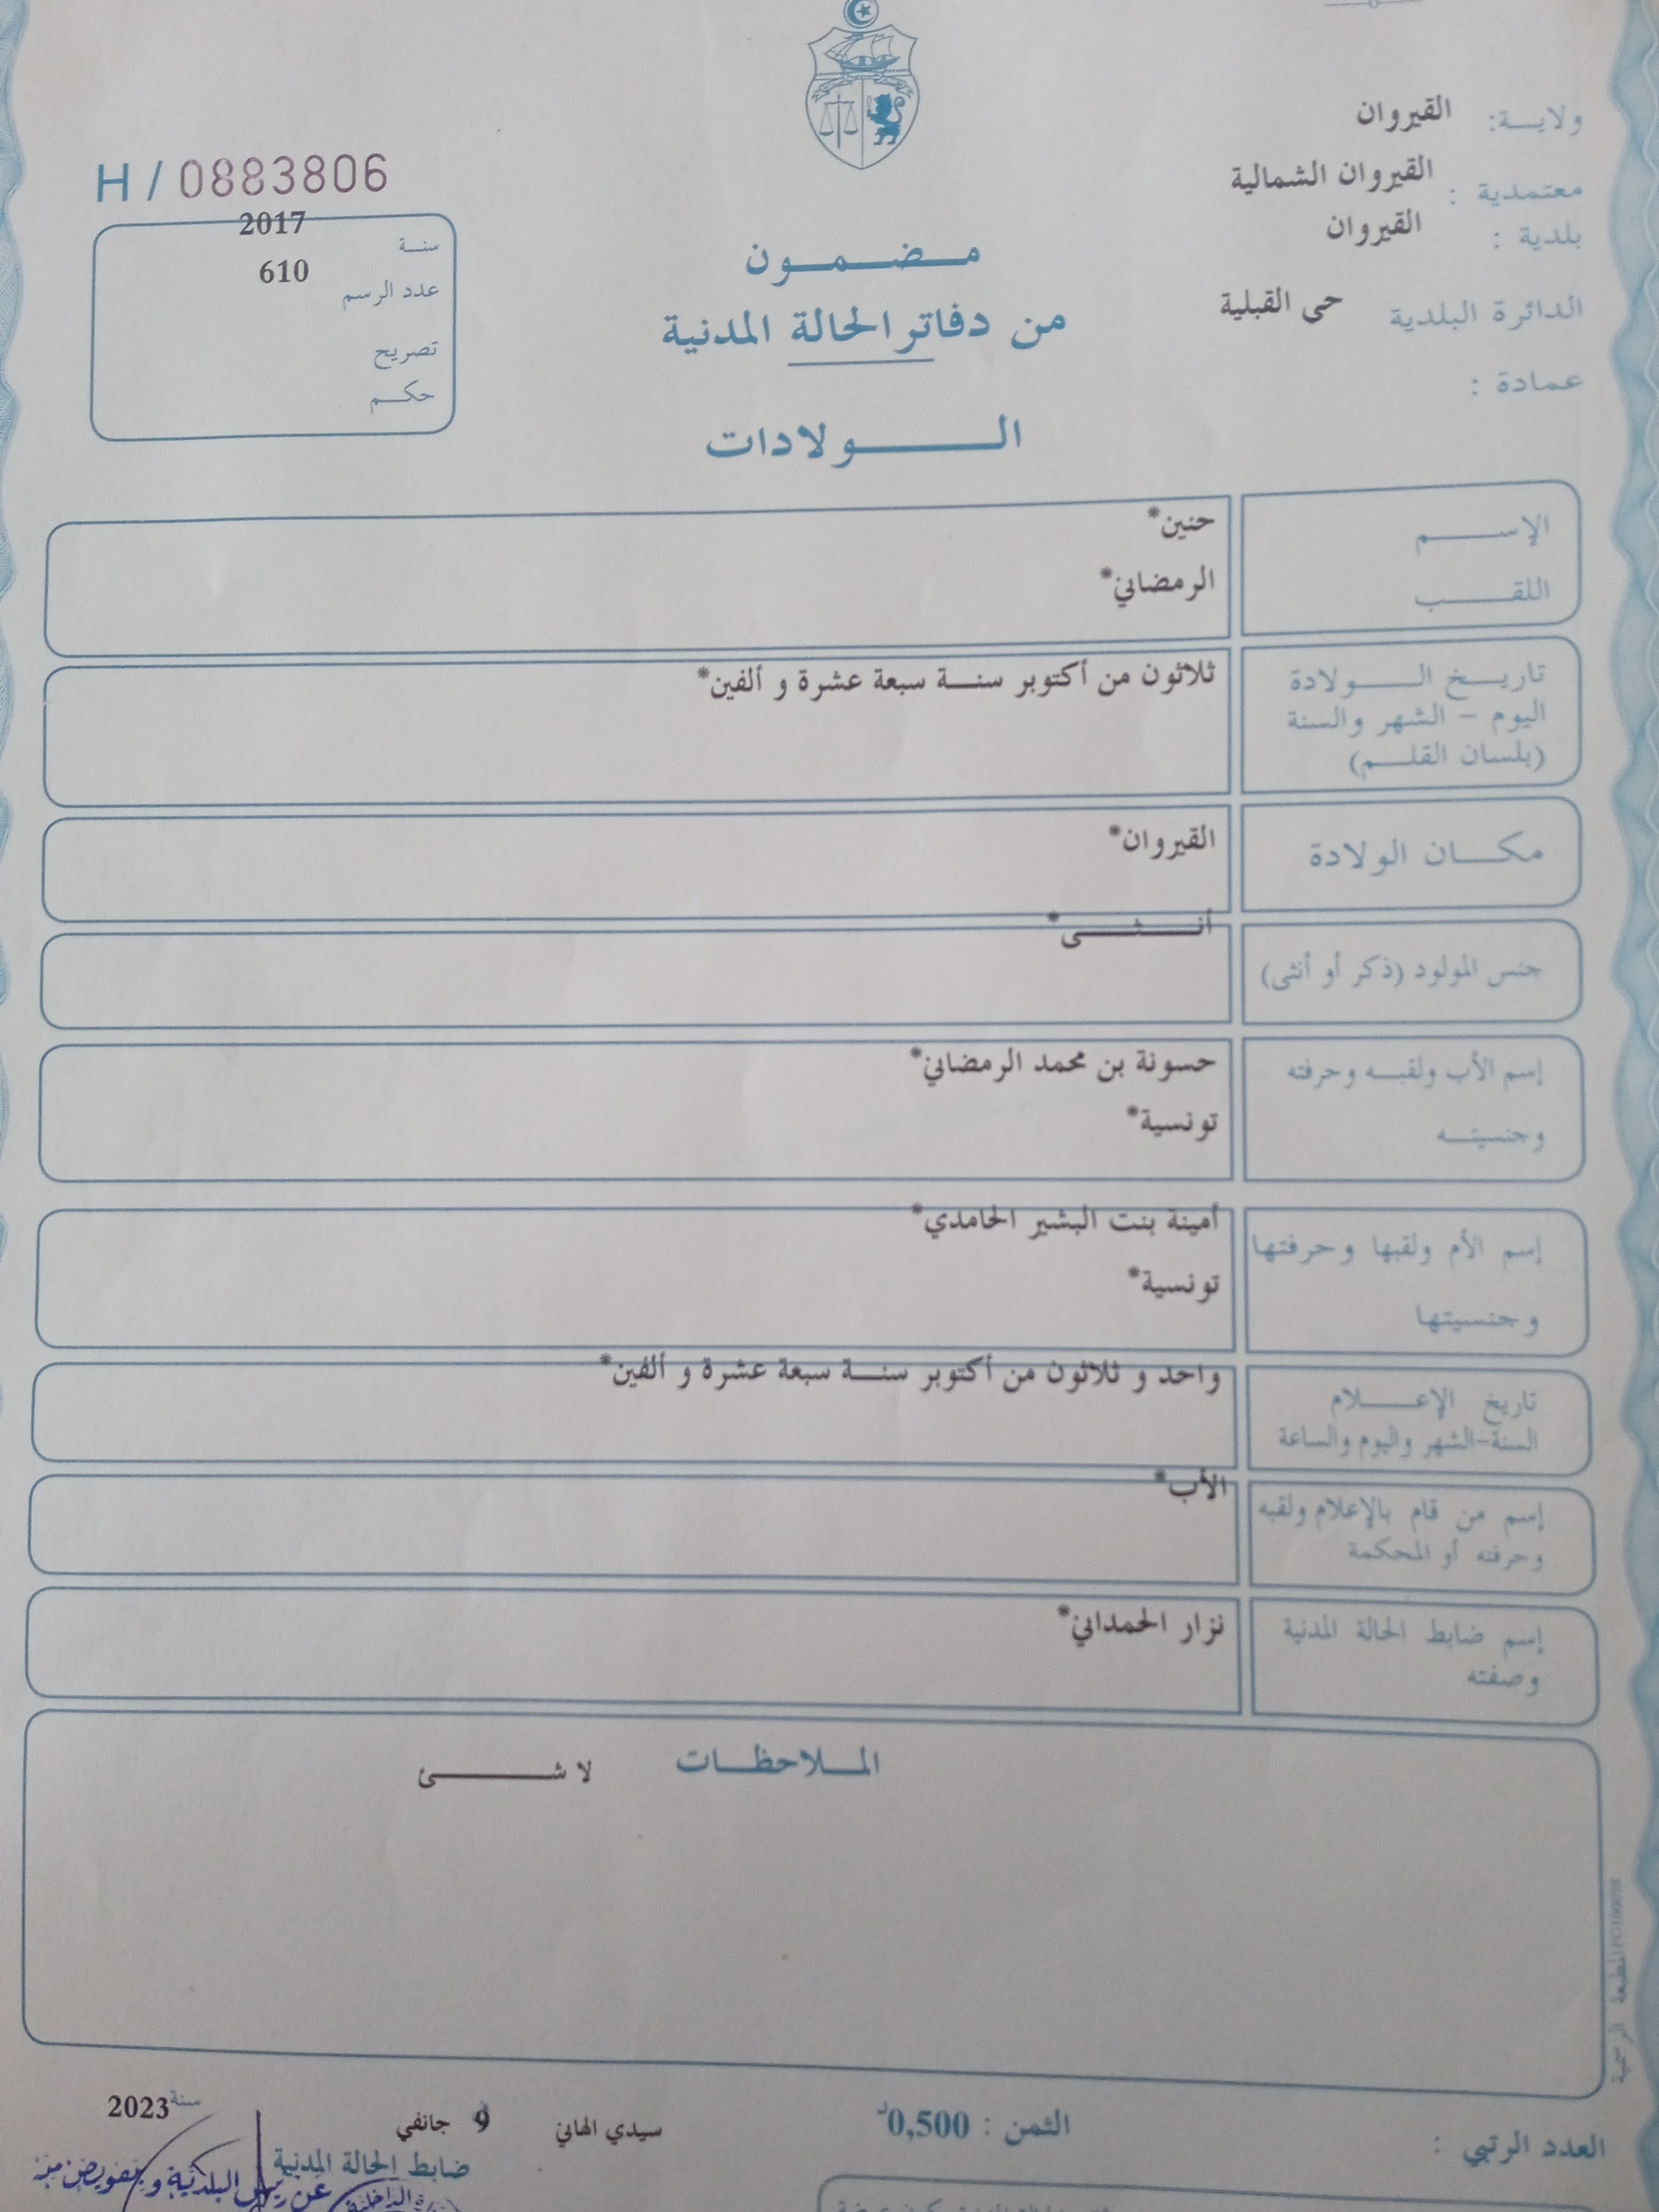 ولايــة: القيروان
معتمدية : القيروان الشمالية
بلدية : القيروان
الدائرة البلدية حي القبلية
عمادة :
H / 0883806
سنــة 2017
عدد الرسم 610
تصريح
حكــم
مــضــمــون
من دفاتر الحالة المدنية
الــــولادات
الإســـــم حنين*
اللقـــــب الرمضاني*
تاريــخ الـــولادة ثلاثون من أكتوبر سنــة سبعة عشرة و ألفين*
اليوم – الشهر والسنة
(بلسان القلــم)
مكــان الولادة القيروان*
جنس المولود (ذكر أو أنثى) أنــــثــــى*
إسم الأب ولقبــه وحرفته حسونة بن محمد الرمضاني*
وجنسيتــه تونسية*
إسم الأم ولقبها وحرفتها أمينة بنت البشير الحامدي*
وجنسيتها تونسية*
تاريخ الإعــــلام واحد و ثلاثون من أكتوبر سنــة سبعة عشرة و ألفين*
السنة-الشهر واليوم والساعة
إسم من قام بالإعلام ولقبه الأب*
وحرفته أو المحكمة
إسم ضابط الحالة المدنية نزار الحمداني*
وصفته
المــلاحظــات لا شـــــئ
المطبعة الرسمية
العدد الرتبي :
الثمن : 0,500د
سيدي الهاني 9 جانفي سنة 2023
ضابط الحالة المدنية
عن رئيس البلدية وبتفويض منه